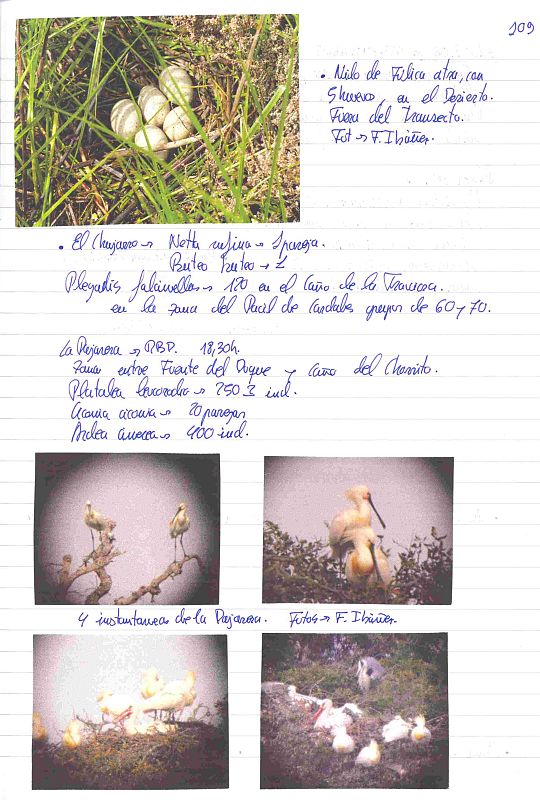 109
• Nido de Fulica atra, con
5 huevos, en el Desierto.
Fuera del transecto.
Fot → F. Ibáñez.
• El → Netta rufina → 1 pareja.
Buteo buteo → 1
Plegadis falcinellus → 120 en el Caño de la
en la zona del de Candales grupos de 60 y 70.
La Pajarera → RBD. 18,30h.
Zona entre Fuente del Duque y caño del
Platalea leucorodia → 250 ind.
Ciconia ciconia → 20 parejas
Ardea cinerea → 400 ind.
4 instantaneas de la Pajarera. Fotos → F. Ibáñez.